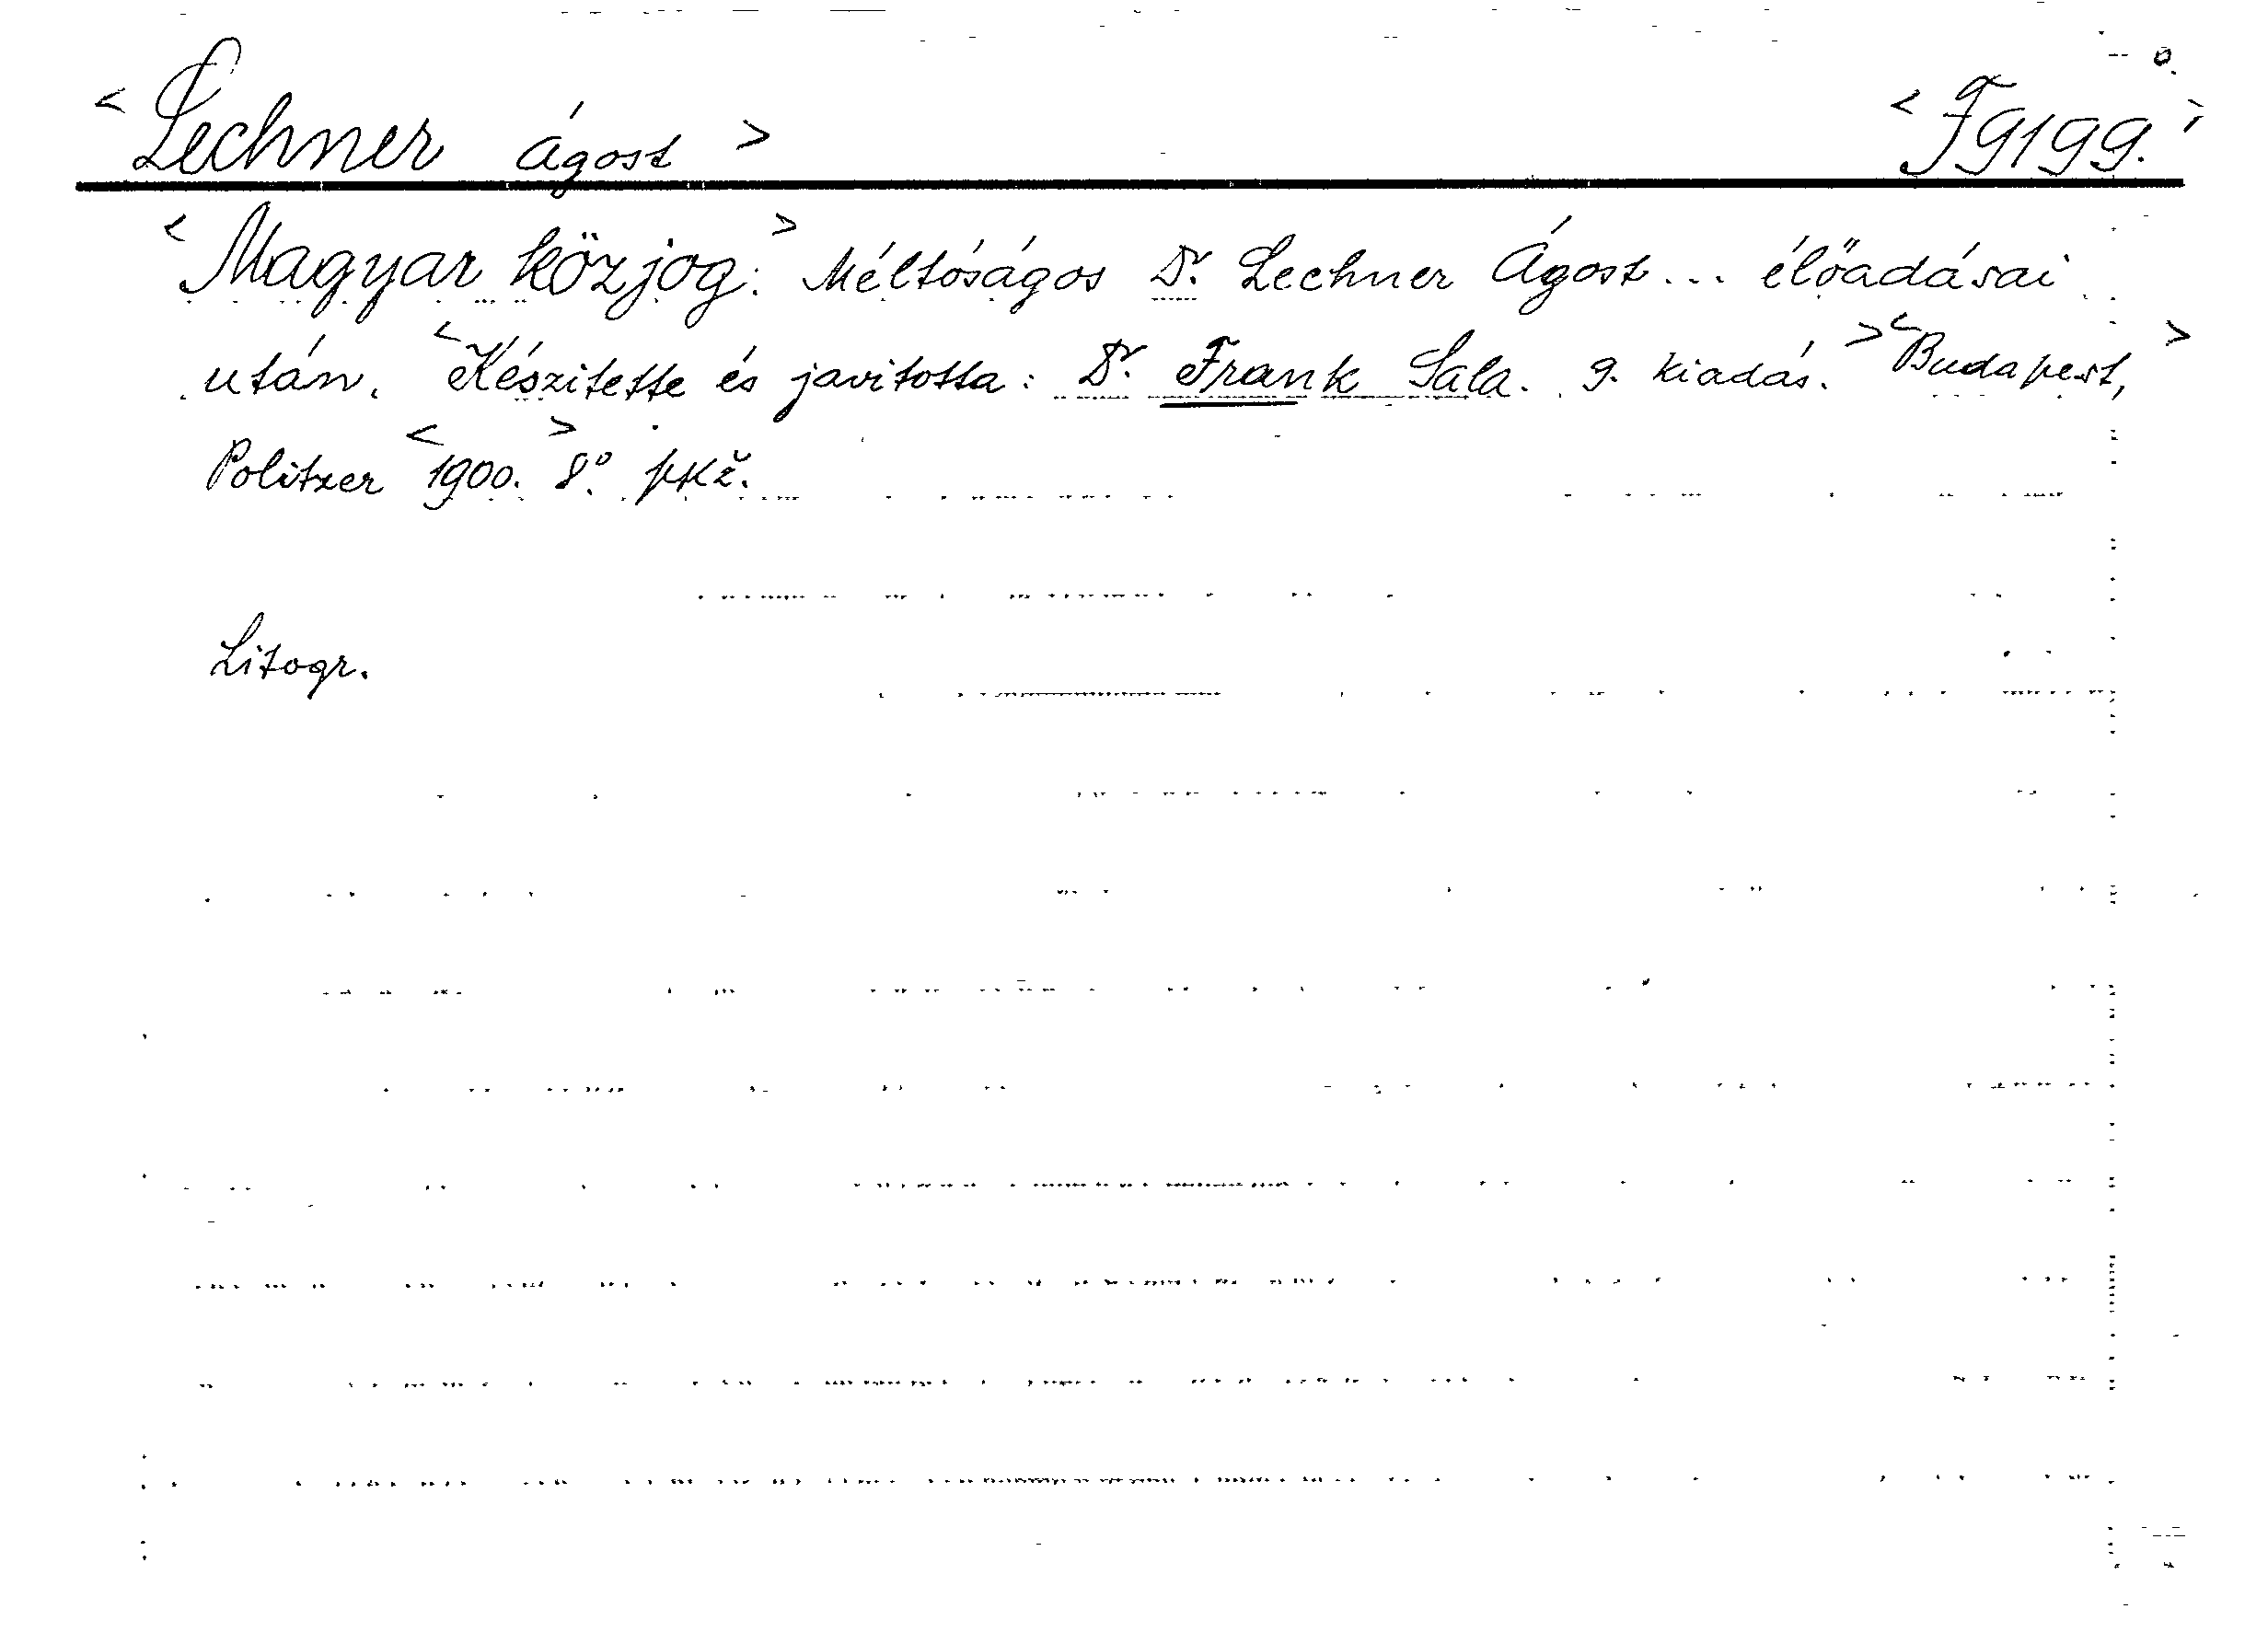 <Lechner Ágost> <F9199.>
<Magyar közjog:> Méltóságos Dr. Lechner Ágost... élőadásai
után. <Készitette és javitotta: Dr. Frank Sala. 9. kiadás.> <Budapest,>
Politzer <1900.> 8°.
Litogr.